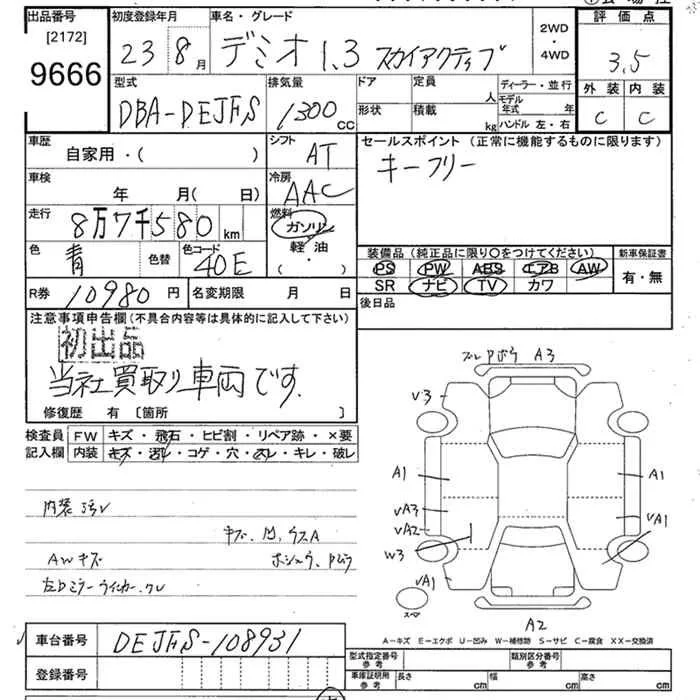 出品番号 [2172] 9666
初度登録年月 23 8月
車名・グレード デミオ 1.3 スカイアクティブ
2WD・4WD
評価点 3.5
外装 C 内装 C
型式 DBA-DEJFS
排気量 1300 CC
ドア 形状
定員 人
積載 kg
ディーラー・並行
モデル年式 年
ハンドル 左・右
車歴 自家用・( )
シフト AT
セールスポイント (正常に機能するものに限ります)
キーフリー
車検 年 月( 日)
冷房 AAC
走行 8万7千580 km
燃料 ガソリン 軽油 ( ・ )
色 青 色替
色コード 40E
装備品 (純正品に限り〇をつけてください)
PS PW ABS エアB AW
SR ナビ TV カワ
新車保証書 有・無
R券 10980 円
名変期限 月 日
後日品
注意事項申告欄 (不具合内容等は具体的に記入して下さい)
初出品
当社買取り車両です.
修復歴 有 〔箇所 〕
検査員記入欄
FW キズ・飛石・ヒビ割・リペア跡・×要
内装 キズ・汚レ・コゲ・穴・スレ・キレ・破レ
内装汚レ
キズ、凹、ウスA
AWキズ
左Dミラーウインカークレ
A3
V3
A1
A1
VA3
VA2
VA1
W3
VA1
スペ
A2
A-キズ E-エクボ U-凹み W-補修跡 S-サビ C-腐食 XX-交換済
車台番号 DEJFS-108931
登録番号
型式指定番号 参考
類別区分番号 参考
車庫証明用 参考 長さ cm 幅 cm 高さ cm